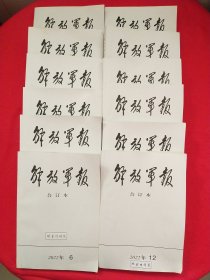 解放军报
解放军报
解放军报
解放军报
解放军报
解放军报
解放军报
解放军报
解放军报
解放军报
解放军报
合订本
2022年 6
解放军报
合订本
2022年 12